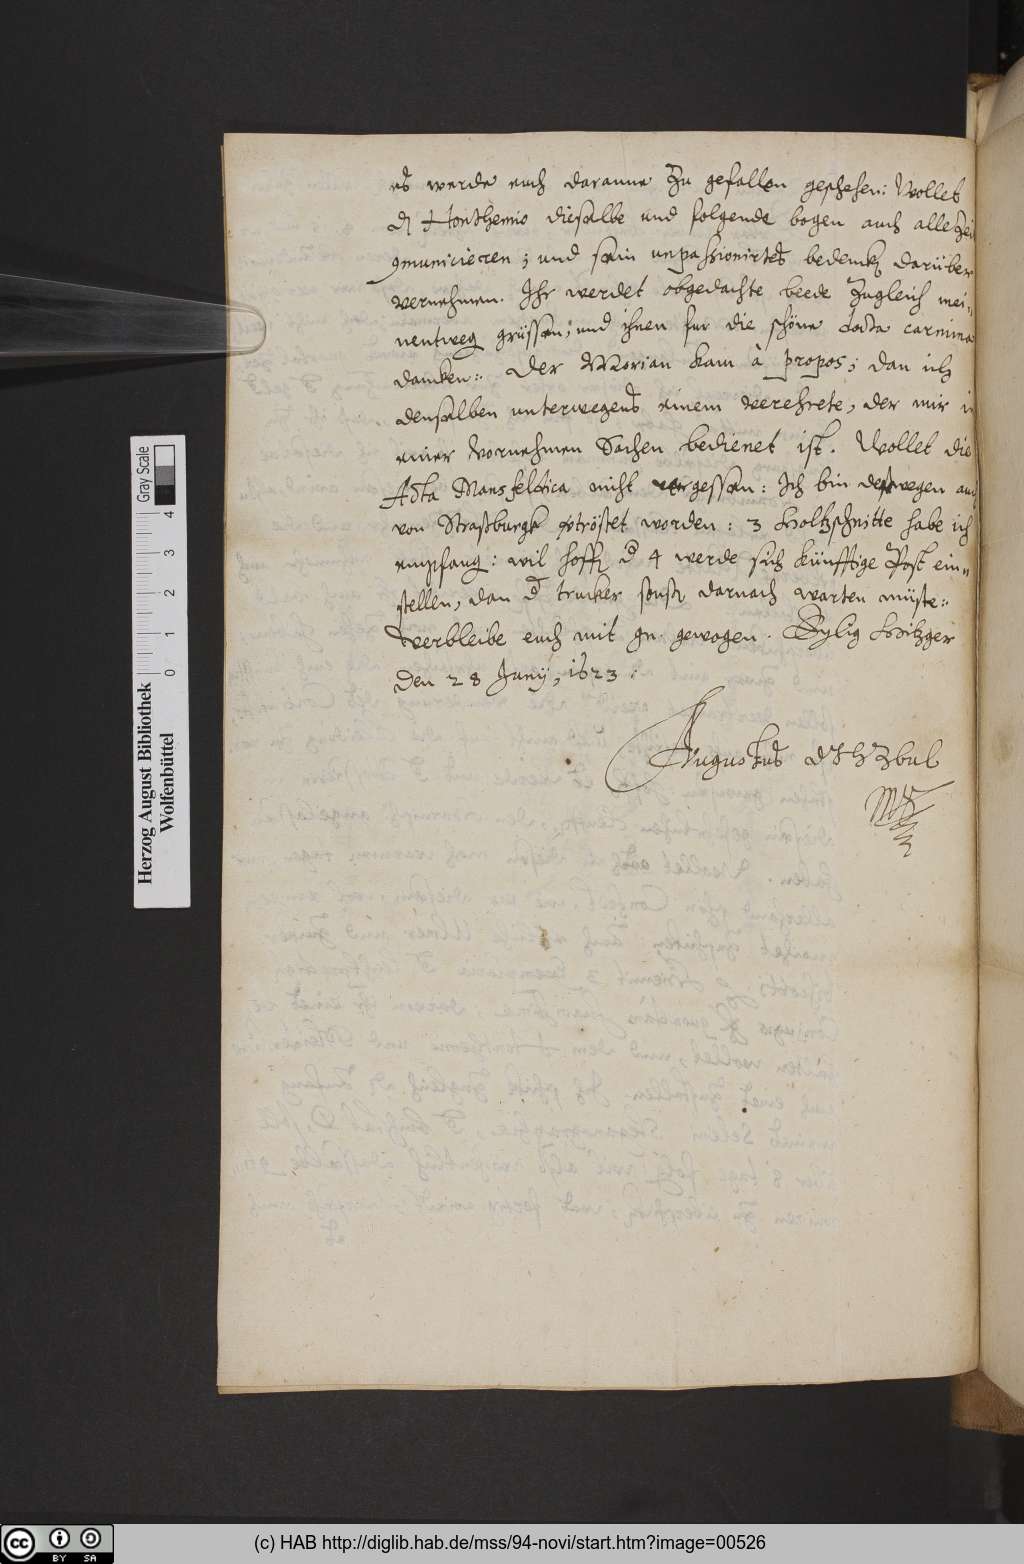 es werde euch daranne zu gefallen geschehen: Wollet
dem Honthemio dieselbe und folgende bogen auch alle Zeit
9municieren; und sein unpassionirtes bedencken darüber
vernehmen. Ihr werdet obgedachte beede zugleich mei=
nentweg grüssen; und ihnen fur die schöne docta carmina
dancken: Der Morian kam à propos; dan ich
denselben unterwegens einem verehrete, der mir in
einer vornehmen Sachen bedienet ist. Wollet die
Acta Mansfeldica nicht vergessen: Ich bin deswegen auch
von Straßburgk getröstet worden: 3 Holtzschnitte habe ich
empfang: wil hoffen die 4 werde sich künfftige Post ein=
stellen, dan der trucker sonst darnach warten müste:
Verbleibe euch mit gn. gewogen. Eylig Hitzger
den 28 Junij, 1623:
Augustus dJHZbuL
Mpp
Herzog August Bibliothek
Wolfenbüttel
Gray Scale
0 1 2 3 4
(c) HAB http://diglib.hab.de/mss/94-novi/start.htm?image=00526
cc BY SA